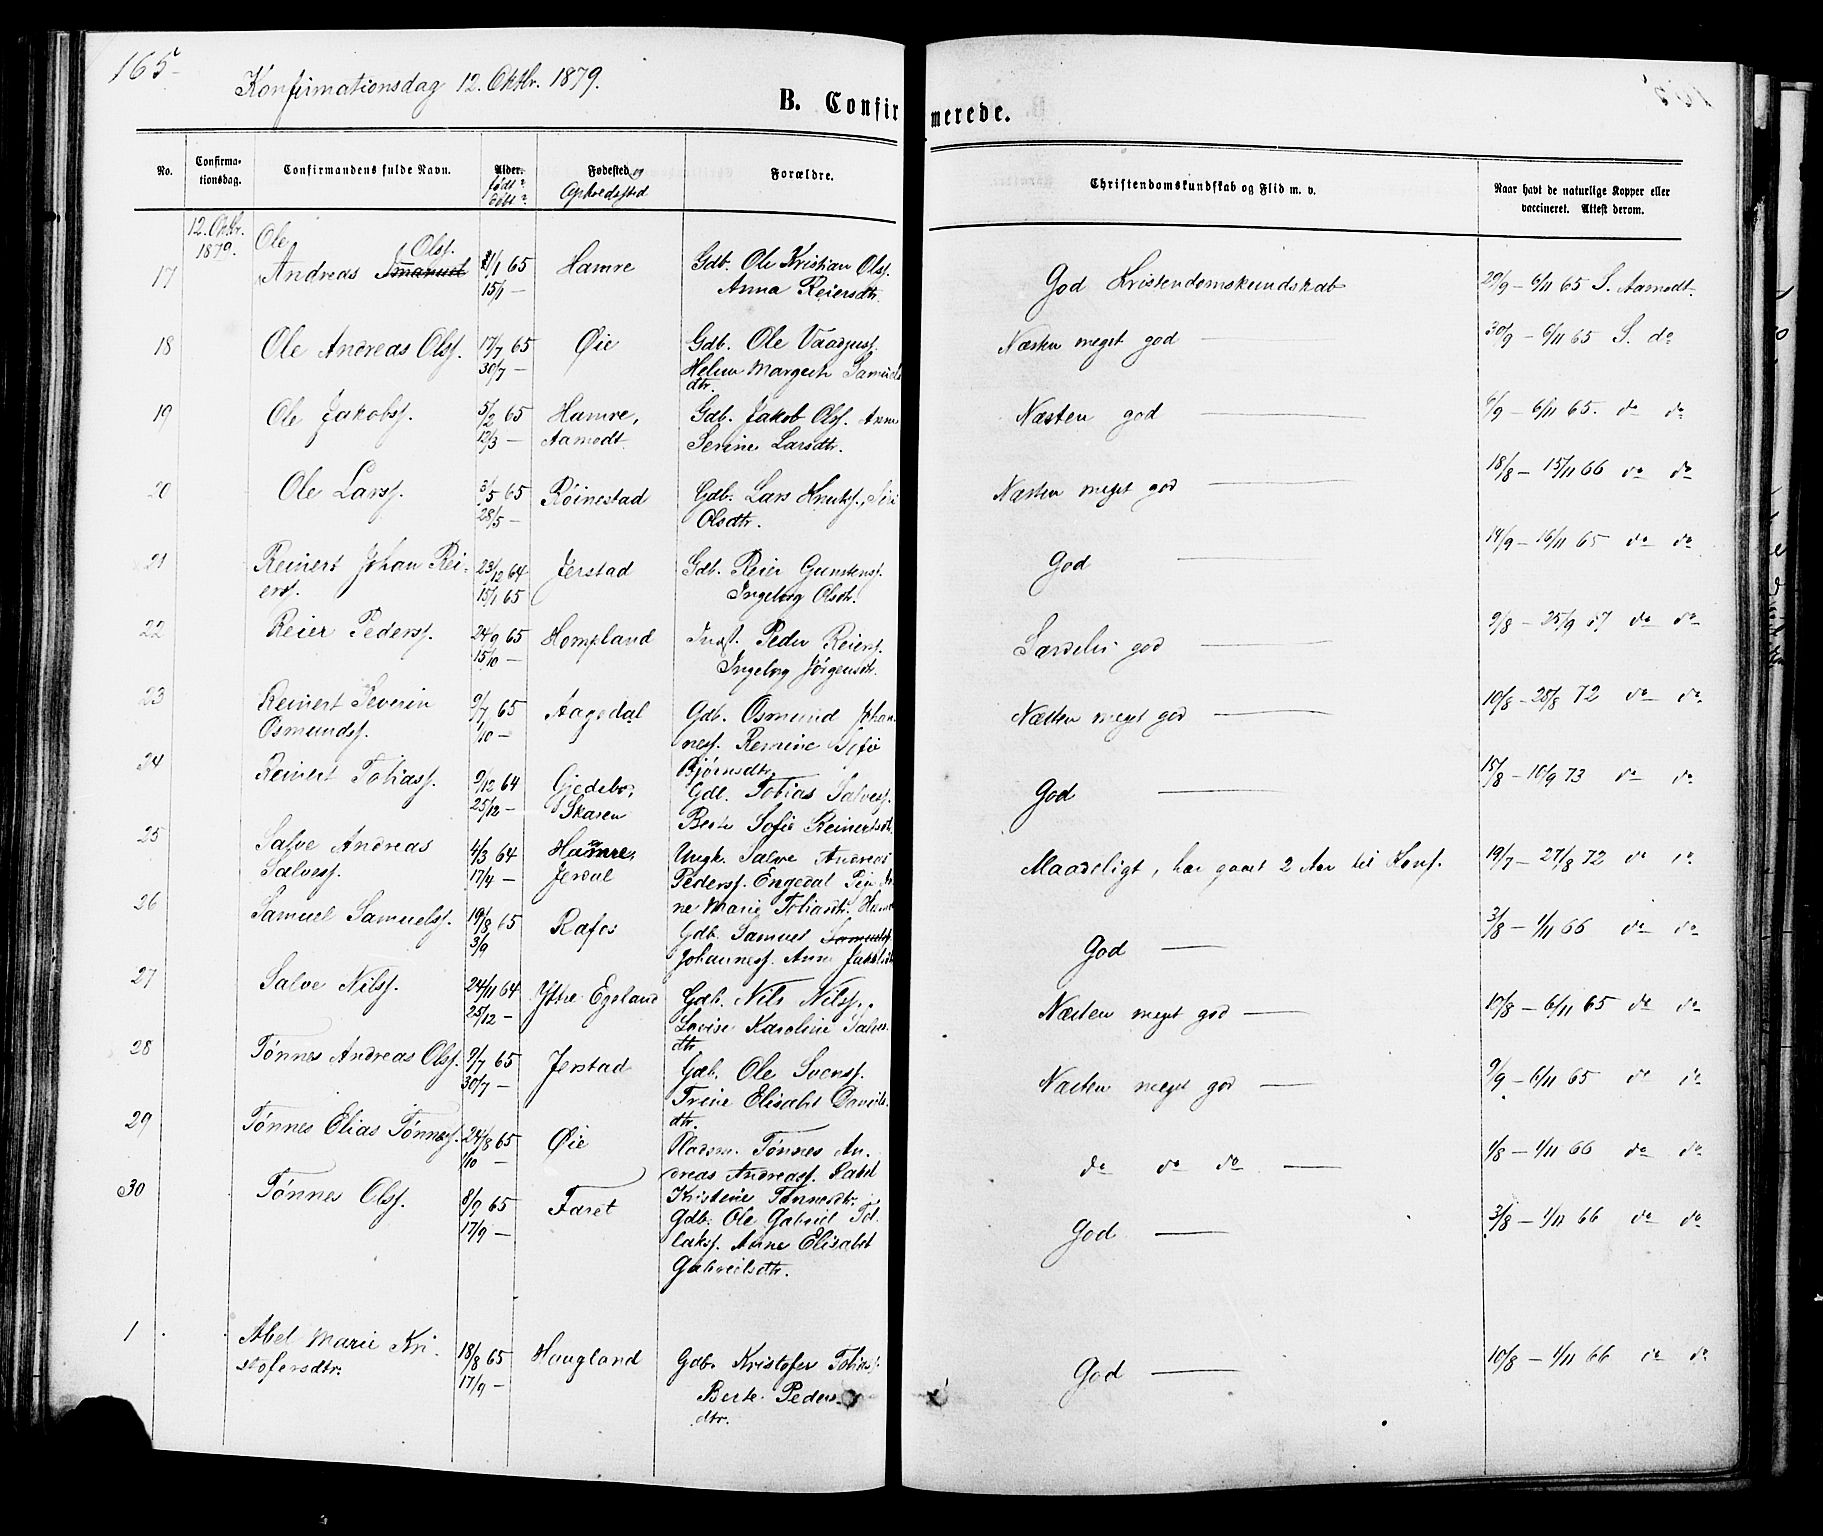 165
Konfirmationsdag 12. Oktbr. 1879.
B. Confirmerede.
No.
Confirma-
tionsdag.
Confirmandens fulde Navn.
Alder.
født?
døbt?
Fødested og
Opholdssted
Forældre.
Christendomskundskab og Flid m. v.
Naar havt de naturlige Kopper eller
vaccineret. Attest derom.
12. Oktbr.
1879.
17 Ole Olsf.
Andreas Smanuel 21/1 65 Hamre Gdb. Ole Kristian Olsf. God Kristendomskundskab 29/9 – 6/11 65 S. Aamodt.
15/1 — Anna Reiersdtr.
18 Ole Andreas Olsf. 17/7 65 Øie Gdb. Ole Næsten meget god — 30/9 – 6/11 65 S. do
30/7 — Margrete Samuels
dtr.
19 Ole Jakobsf. 5/2 65 Hamre, Gdb. Jakob Olsf. Anne Næsten god — 6/9 – 6/11 65. do do
12/3 — Aamodt. Serine Larsdtr.
20 Ole Larsf. 3/5 65 Røinestad Gdb. Lars Knutsf. Næsten meget god — 18/8 – 15/11 66 do do
28/5 — Olsdtr.
21 Reinert Johan Rei- 23/12 64 Jerstad Gdb. Reier Gunstensf. God — 14/9 – 16/11 65 do do
ersf. 15/1 65 Ingeborg Olsdtr.
22 Reier Pedersf. 24/9 65 Hompland Indst. Peder Reiersf. Særdeles god — 9/8 – 25/9 67 do do
15/10 — Ingeborg Jörgensdtr.
23 Reinert Severin 9/7 65 Aagedal Gdb. Osmund Johan- Næsten meget god — 10/8 – 28/8 72 do do.
Osmundsf. 1/10 — nesf. Remine Sofie
Bjørnsdtr.
24 Reinert Tobiasf. 9/12 64 Gjedebo, Gdb. Tobias Salvesf. God — 15/8 – 10/9 73 do do
25/12 — Skaren Berte Sofie Reinertsdtr.
25 Salve Andreas 4/3 64 Hamre, Ungk. Salve Andreas Maadeligt, har gaaet 2 Aar til Konf. 19/7 – 27/8 72 do do
Salvesf. 17/4 — Jerdal Pedersf. Engedal Pige An
ne Marie Tobiasdtr. Hamre
26 Samuel Samuelsf. 19/8 65 Rafos Gdb. Samuel Samuelsf God — 3/8 – 1/11 66 do do
3/9 Johannesf. Anne Jakobsdtr
27 Salve Nilsf. 24/11 64 Ytre Egeland Gdb. Nils Nilsf., Næsten meget god — 10/8 – 6/11 65 do do
25/12 — Lovise Karoline Salves
dtr.
28 Tønnes Andreas Olsf. 9/7 65 Jerstad Gdb. Ole Svensf. Næsten meget god — 9/9 – 6/11 65 do do
30/7 — Trine Elisabet Daniels
dtr.
29 Tønnes Elias Tønnesf. 24/8 65 Øie Pladsm. Tønnes An- do do do — 1/8 – 1/11 66 do do
1/10 — dreas Andreasf.
Kristene Tønnesdtr.
30 Tønnes Olsf. 8/7 65 Faret Gdb. Ole Gabriel Tol- God — 3/8 – 1/11 66 do do
17/9 — laksf. Anne Elisabet
Gabrielsdtr.
1 Abel Marie Kri- 18/8 65 Haugland Gdb. Kristofer Tobiasf. God — 10/8 – 1/11 66 do do
stofersdtr. 17/9 — Berte Peders
dtr.